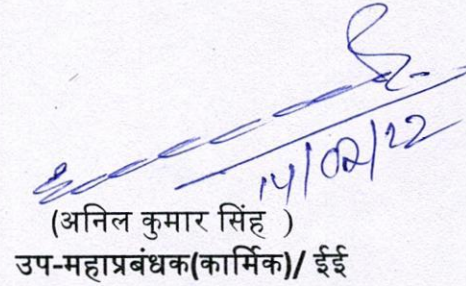 14/02/22
(अनिल कुमार सिंह )
उप-महाप्रबंधक(कार्मिक)/ ईई